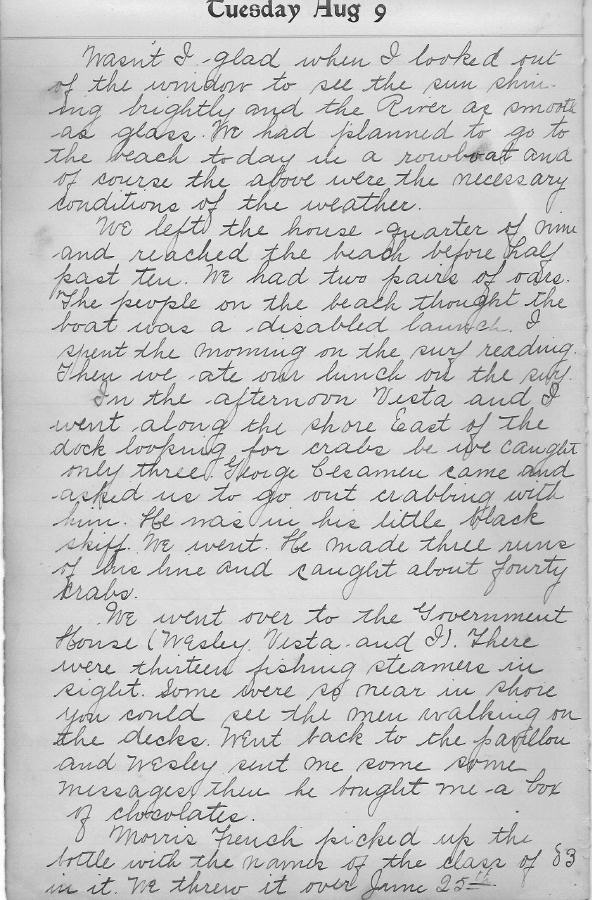 Tuesday Aug 9
Wasn't I glad when I looked out
of the window to see the sun shin-
ing brightly and the River as smooth
as glass. We had planned to go to
the beach today in a rowboat and
of course the above were the necessary
conditions of the weather.
We left the house quarter of nine
and reached the beach before half
past ten. We had two pairs of oars.
The people on the beach thought the
boat was a disabled launch. I
spent the morning on the surf reading.
Then we ate our lunch on the surf.
In the afternoon Vesta and I
went along the shore East of the
dock looking for crabs be we caught
only three. George came and
asked us to go out crabbing with
him. He was in his little black
skiff. We went. He made three runs
of his line and caught about fourty
crabs.
We went over to the Government
House (Wesley, Vesta and I). There
were thirteen fishing steamers in
sight. Some were so near in shore
you could see the men walking on
the decks. Went back to the pavilion
and Wesley sent me some some
messages, then he bought me a box
of chocolates.
Morris French picked up the
bottle with the names of the class of
in it. We threw it over June 25th.